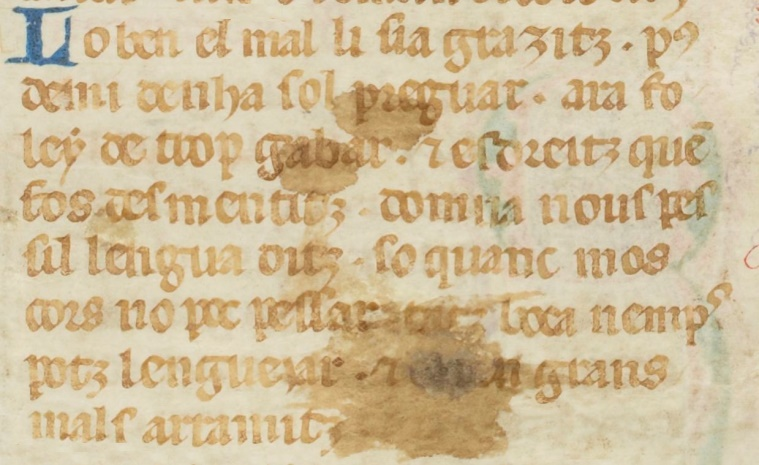 Lo ben el mal li sia grazitz · pꝰ
demi denha sol preguar · ara fo
ley de trop gabar · ⁊ esdreitz quē
fos desmentitz · domna nous pes
sil lengua ditz · so quanc mos
cors no poc pessar boca nemp
potz lengueiar · ⁊ grans
mals arramitz